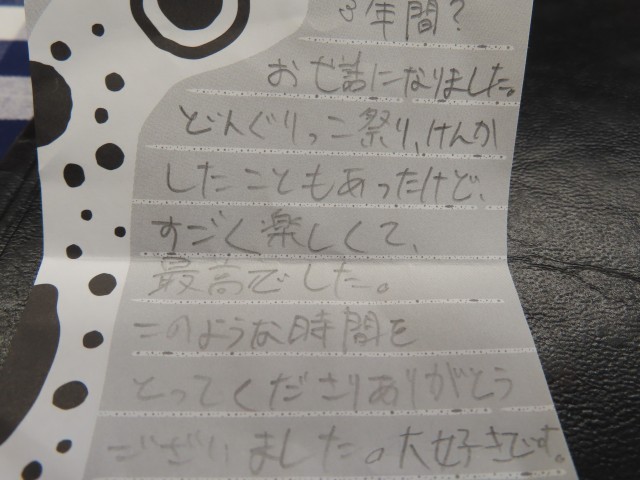 3年間?
お世話になりました。
どんぐりっこ祭り、けんか
したこともあったけど、
すごく楽しくて、
最高でした。
このような時間を
とってくださりありがとう
ございました。大好きです。